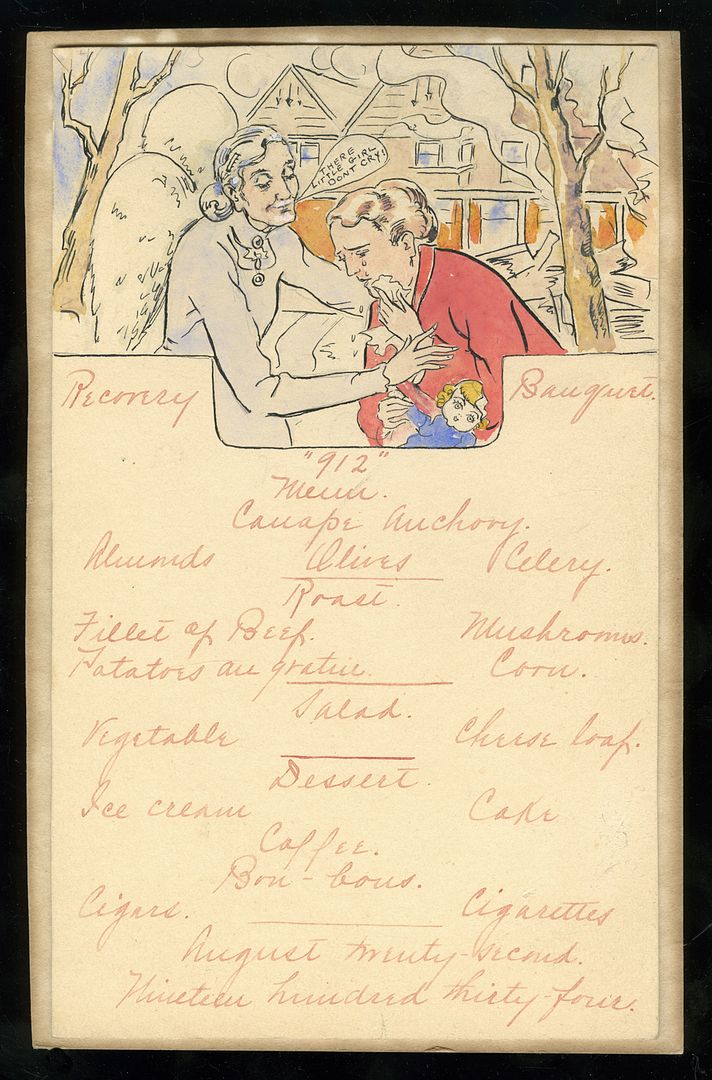 THERE
LITTLE GIRL
DONT CRY!
Recovery Banquet.
"912"
Menu.
Canape Anchovy.
Almonds Olives Celery.
Roast.
Fillet of Beef. Mushrooms.
Potatoes au gratin. Corn.
Salad.
Vegetable Cheese loaf.
Dessert.
Ice cream Cake
Coffee.
Bon-bons.
Cigars. Cigarettes
August twenty-second.
Nineteen hundred thirty-four.